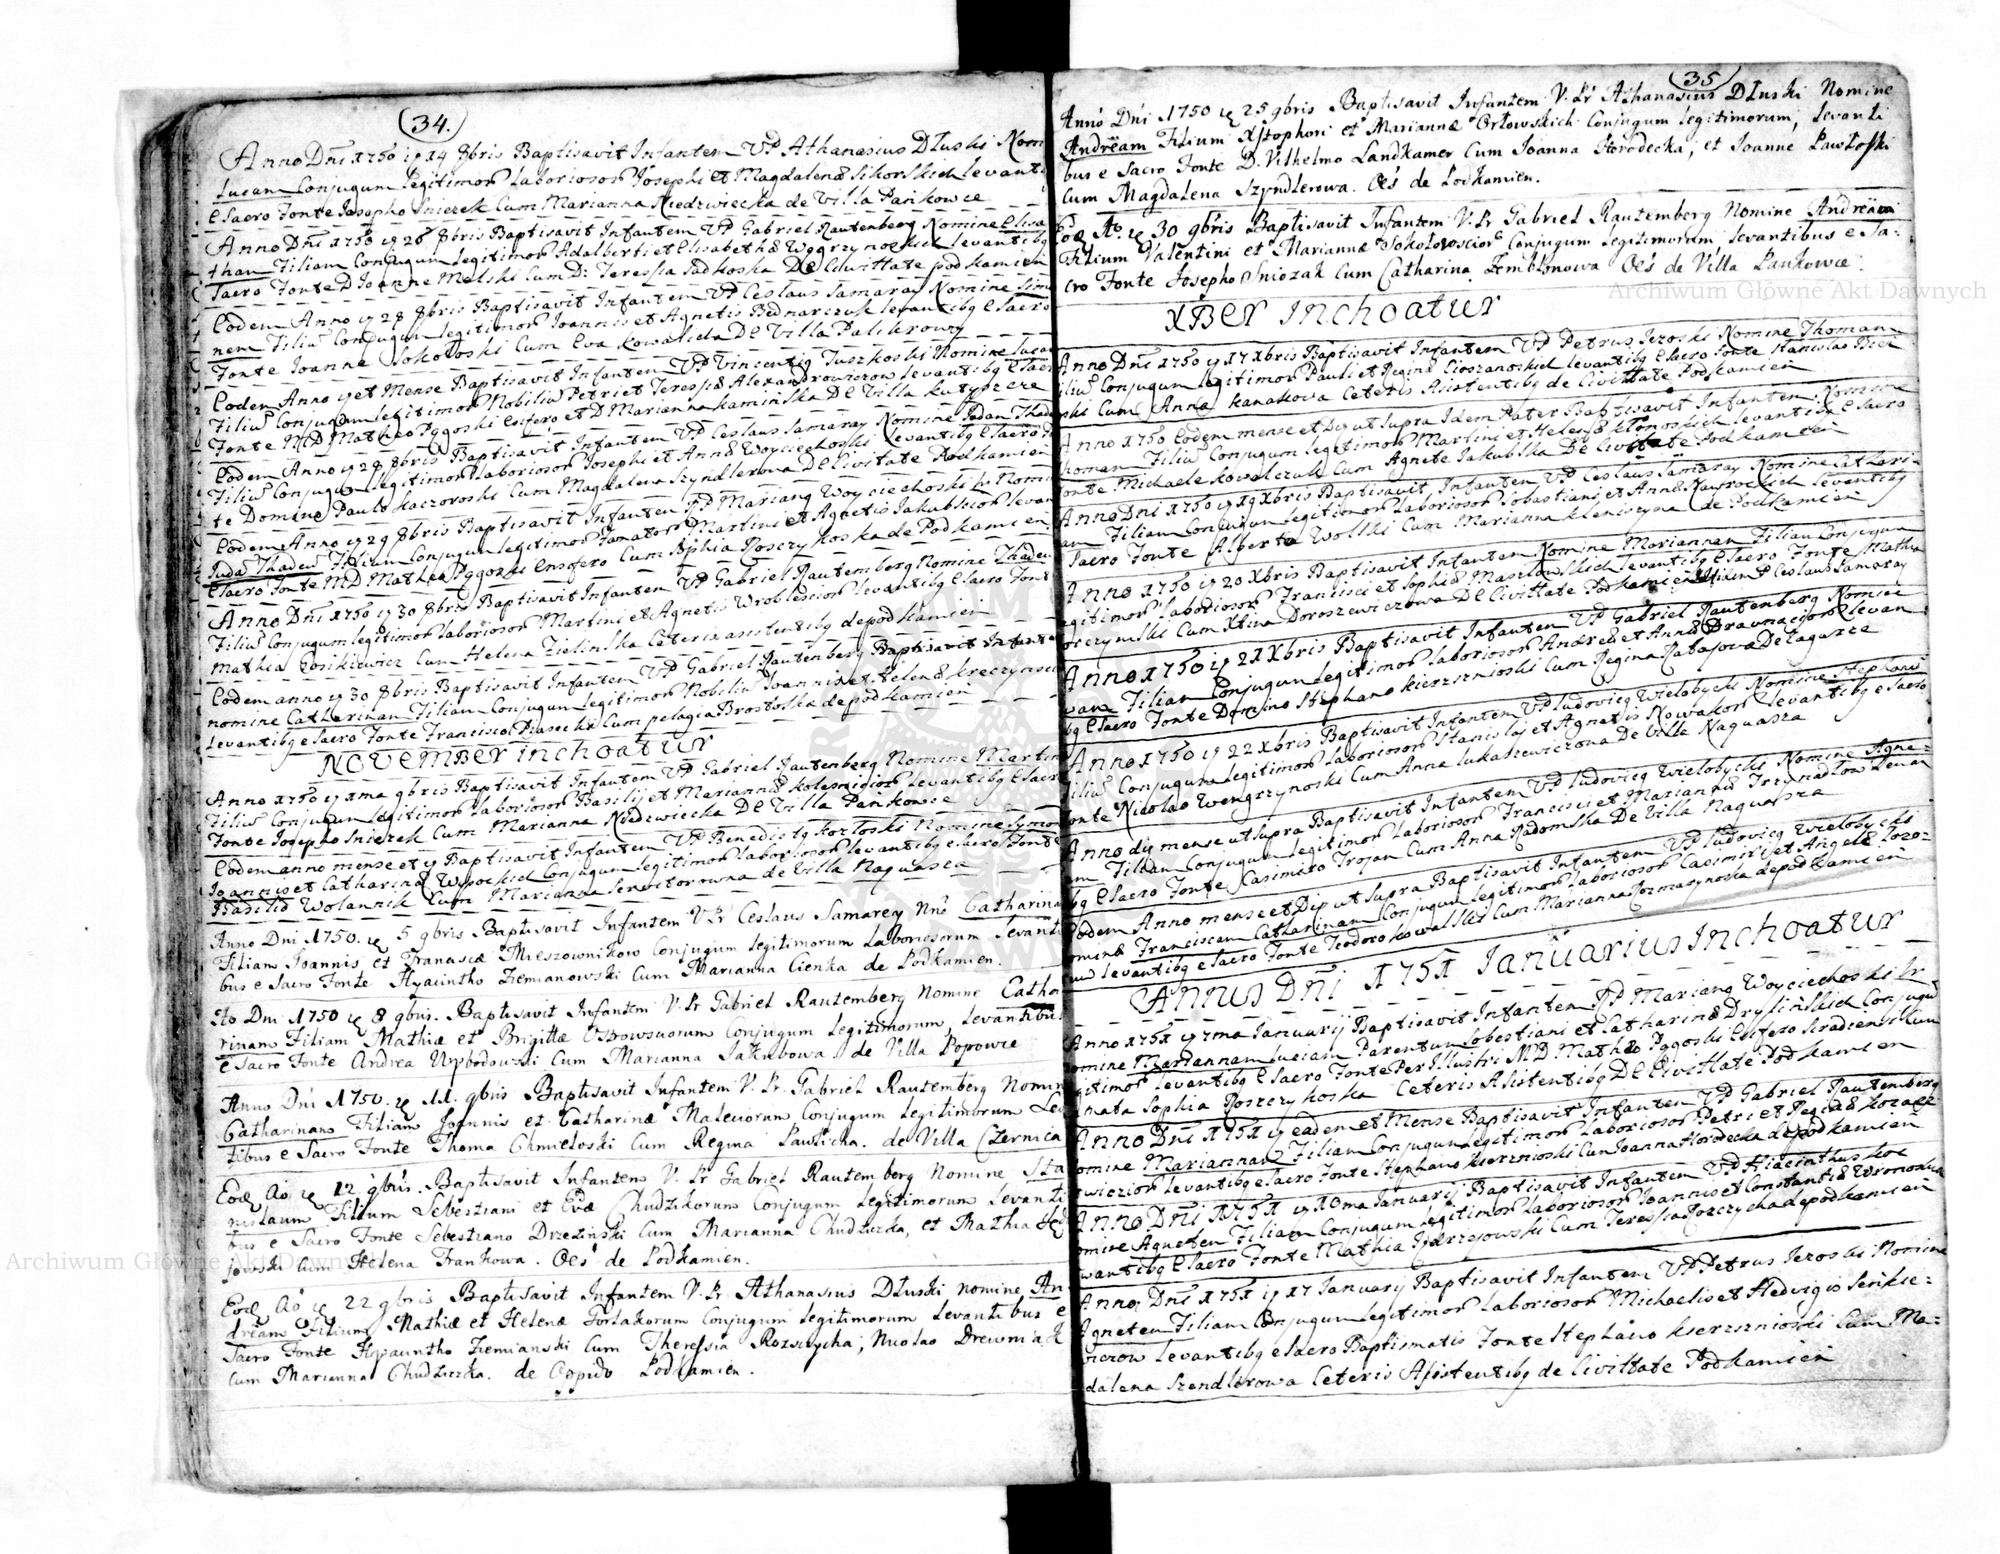 34.
Anno Dni 1750 14 8bris Baptisavit Infantem VP Athanasius Dłuski Nom
Lucam Conjugum legitimor Laboriosor Josephi et Magdalena Sikorskich levanti
e Sacro Fonte Josepho Sniezek Cum Marianna Niedzwiecka de Villa Pańkowce
Anno Dni 1750 26 8bris Baptisavit Infantem VP Gabriel Rautenberg Nomine Elisa
than Filiam Conjugum legitimor Adalberti et Elisabetha levantibq
Sacro Fonte D Joanne Melski Cum D: Teressia Sadkoska De Civittate podkamien
Eodem Anno 28 8bris Baptisavit Infantem VP Ceslaus Samaray Nomine Simo
nem Filiu Conjugum legitimor Joannis et Agnetis Bednarczuk levantibq e Sacro
Fonte Joanne Sokołoski Cum Eva kowalicha De Villa Palikrowy
Eodem Anno et Mense Baptisavit Infantem VP Vincentiq Tuszkoski Nomine Lucam
Filiu Conjugum legitimor Nobiliu Petri et Teressia Alexandrowiczow levantibq e Sacr
Fonte MD Matheo Pągoski Esifero et D Marianna kaminska De Villa kutyszcze
Eodem Anno 28 8bris Baptisavit Infantem VP Ceslaus Samaray Nomine Judam Thade
Filiu Conjugum legitimor laboriosor Josephi et Anna Woyciechoski levantibq e Sacro
te Domino Paulo kaczoroski Cum Magdalena Szyndlerowa De Civitate Podkamien
Eodem Anno 29 8bris Baptisavit Infantem VP Marianq Woyciechoski Nomine
Juda Thadeu Filium Conjugum legitimor Famator Martini et Agnetis Jakubscior levan
e Sacro Fonte MD Mathea Pągoski Ensofero Cum Sophia Roszczykoska de Podkamien
Anno Dni 1750 30 8bris Baptisavit Infantem VP Gabriel Rautemberg Nomine Thadeu
Filiu Conjugum legitimor laboriosor Martini et Agnetis Wroblescior levantibq e Sacro Font
Mathia Cosikiewicz Cum Helena Zielinska Ceteris asistentibq de podkamien
Eodem anno 30 8bris Baptisavit Infantem VP Gabriel Rautenberg Baptisavit Infante
nomine Catherinam Filiam Conjugum legitimor Nobiliu Joannis et Helena
levantibq e Sacro Fonte Francisco Piasecki Cum pelagia Brostoska de podkamien
NOVEMBER inchoatur
Anno 1750 1ma 9bris Baptisavit Infantem VP Gabriel Rautenberg Nomine Martin
Filiu Conjugum legitimor laboriosor Basilij et Marianna levantibq e Sacr
Fonte Josepho Sniezek Cum Marianna Niedzwiecka De Villa Pańkowce
Eodem anno mense et Baptisavit Infantem VP Benedictq kozłoski Nomine Symon
Joannis et Catharina Wysockich Conjugum legitimor laboriosor levantibq e Sacro Fonte
Basilio Wolannik Cum Marianna de Villa Naguasza
Anno Dni 1750. 5 9bris Baptisavit Infantem V.Pr Ceslaus Samarey Nne Catharina
Filiam Joannis et Francisca Mieszownikow Conjugum legitimorum Laboriosorum levanti
bus e Sacro Fonte Hyacintho Ziemianowski Cum Marianna Cienka de Podkamien.
Ao Dni 1750 8 9bris. Baptisavit Infantem V.Pr Gabriel Rautemberg Nomine Catha
rinam Filiam Mathiæ et Brigittæ Conjugum legitimorum, levantibus
e Sacro Fonte Andrea Cum Marianna Jakubowa de Villa Popowce
Anno Dni 1750. 11. 9bris Baptisavit Infantem V.Pr. Gabriel Rautemberg Nomin
Catharinam Filiam Joannis et Catharinæ Conjugum legitimorum Lev
tibus e Sacro Fonte Thoma Chmieloski Cum Regina Pawlicka. de Villa Czernica
Eodē Ao 12 9bris. Baptisavit Infantem V.Pr Gabriel Rautemberg Nomine Sta
nislaum Filium Sebestiani et Evæ Chudzikorum Conjugum legitimorum levanti
bus e Sacro Fonte Sebestiano Drzezinski Cum Marianna Chudziczka, et Mathia
jowski Cum Helena Frankowa. Oēs de Podkamien.
Eodē Ao 22 9bris Baptisavit Infantem V.Pr. Athanasius Dłuski nomine An
dream Filium Mathiæ et Helenæ Conjugum legitimorum levantibus e
Sacro Fonte Hyacintho Ziemianski Cum Theressia Rozscycha; Nicolao Drewniak
Cum Marianna Chudziczka. de Oppido Podkamien.
35
Anno Dni 1750 25 9bris Baptisavit Infantem V.Pr Athanasius Dłuski Nomine
Andream Filium Xstophori et Mariannæ Orłowskich Conjugum legitimorum, levanti
bus e Sacro Fonte D. Vilhelmo Landkamer Cum Joanna Horodecka, et Joanne Pawłoski
Cum Magdalena Szyndlerowa. Oēs de Podkamien.
Eodē Ao 30 9bris Baptisavit Infantem V.Pr Gabriel Rautemberg Nomine Andream
Filium Valentini et Mariannæ Conjugum legitimorum, levantibus e Sa-
cro Fonte Josepho Sniozak Cum Catharina Zembłonowa Oēs de Villa Pankowce.
XBER Inchoatur
Anno Dni 1750 17 Xbris Baptisavit Infantem VP Petrus Jezoski Nomine Thoman
iliu Conjugum legitimor Pauli et Regina Cioszanoskich levantibq e Sacro Fonte Stanislao
ski Cum Anna kanakowa Ceteris Asistentibq de Civittate Podkamien
Anno 1750 Eodem mense et Die ut supra Idem Pater Baptisavit Infantem Nomine
homan Filiu Conjugum legitimor Martini et Helena kłonoskich levantibq e Sacro
onte Michaele kowalczuk Cum Agnete Jakubska De Civittate Podkamien
Anno Dni 1750 19 Xbris Baptisavit Infantem VP Ceslaus Samaray Nomine Cathari-
am Filiam Conjugum legitimor laboriosor Sobastiani et Anna Nawrockich levantibq
Sacro Fonte Alberto Wolski Cum Marianna de Podkamien
Anno 1750 20 Xbris Baptisavit Infantem Nomine Mariannam Filiam Conjugum
egitimor laboriosor Francisci et Sophia Maszlowskich levantibq e Sacro Fonte Mathia
orczynski Cum Xtina Doroszewiczowa De Civittate Podkamien Idem P Ceslaus Samaray
Anno 1750 21 Xbris Baptisavit Infantem VP Gabriel Rautenberg Nomine
wam Filiam Conjugum legitimor laboriosor Andrea et Anna levan
bq e Sacro Fonte Domino Stephano kierszenioski Cum Regina Ratajowa De Zagorze
Anno 1750 22 Xbris Baptisavit Infantem VP ludovicq Wielobycki Nomine Stephani
iliu Conjugum legitimor laboriosor Stanislaj et Agnetis Nowakow levantibq e Sacro
onte Nicolao Wengrzynoski Cum Anna lukaszewiczowa De Villa Naguasza
Anno die mense ut supra Baptisavit Infantem VP ludovicq Wielobycki Nomine Agne-
am Filiam Conjugum legitimor laboriosor Francisci et Marianna levan
bq e Sacro Fonte Casimiro Trojan Cum Anna Radomska De Villa Naguasza
Eodem Anno mense et Die ut supra Baptisavit Infantem VP ludovicq Wielobycki
omine Franciscam Catharinam Conjugum legitimor laboriosor Casimiri et Angela
levantibq e Sacro Fonte Teodoro kowalski Cum Marianna de podkamien
ANNUS Dni 1751 Ianuarius Inchoatur
Anno 1751 1ma Januarij Baptisavit Infantem VP Marianq Woyciechoski Pr
omine Mariannam luciam Parentum Sobestiani et Catharina Drylinskich Conjugu
gitimor levantibq e Sacro Fonte Per Illustri MD Matheo Pągoski Esifero Siradiensi Cum
nata Sophia Roszczykoska Ceteris Asistentibq De Civittate Podkamien
Anno Dni 1751 eadem et Mense Baptisavit Infantem VP Gabriel Rautemberg
omine Mariannam Filiam Conjugum legitimor laboriosor Petri et Regina
levantibq e Sacro Fonte Stephano kierszenioski Cum Joanna Horodecka de podkamien
Anno Dni 1751 10ma Januarij Baptisavit Infantem VP Hiacinthus
omine Agneten Filiam Conjugum legitimor laboriosor Joannis et Constantia
wantibq e Sacro Fonte Mathia Cum Teressia Roszczycha de podkamien
Anno Dni 1751 17 Januarij Baptisavit Infantem VP Petrus Jezoski Nomine
Agneten Filiam Conjugum legitimor laboriosor Michaelis et Hedvigis
levantibq e Sacro Baptismatis Fonte Stephano kierszenioski Cum Ma-
dalena Szendlerowa Ceteris Asistentibq de Civittate Podkamien
Archiwum Główne Akt Dawnych
Archiwum Główne Akt Dawnych